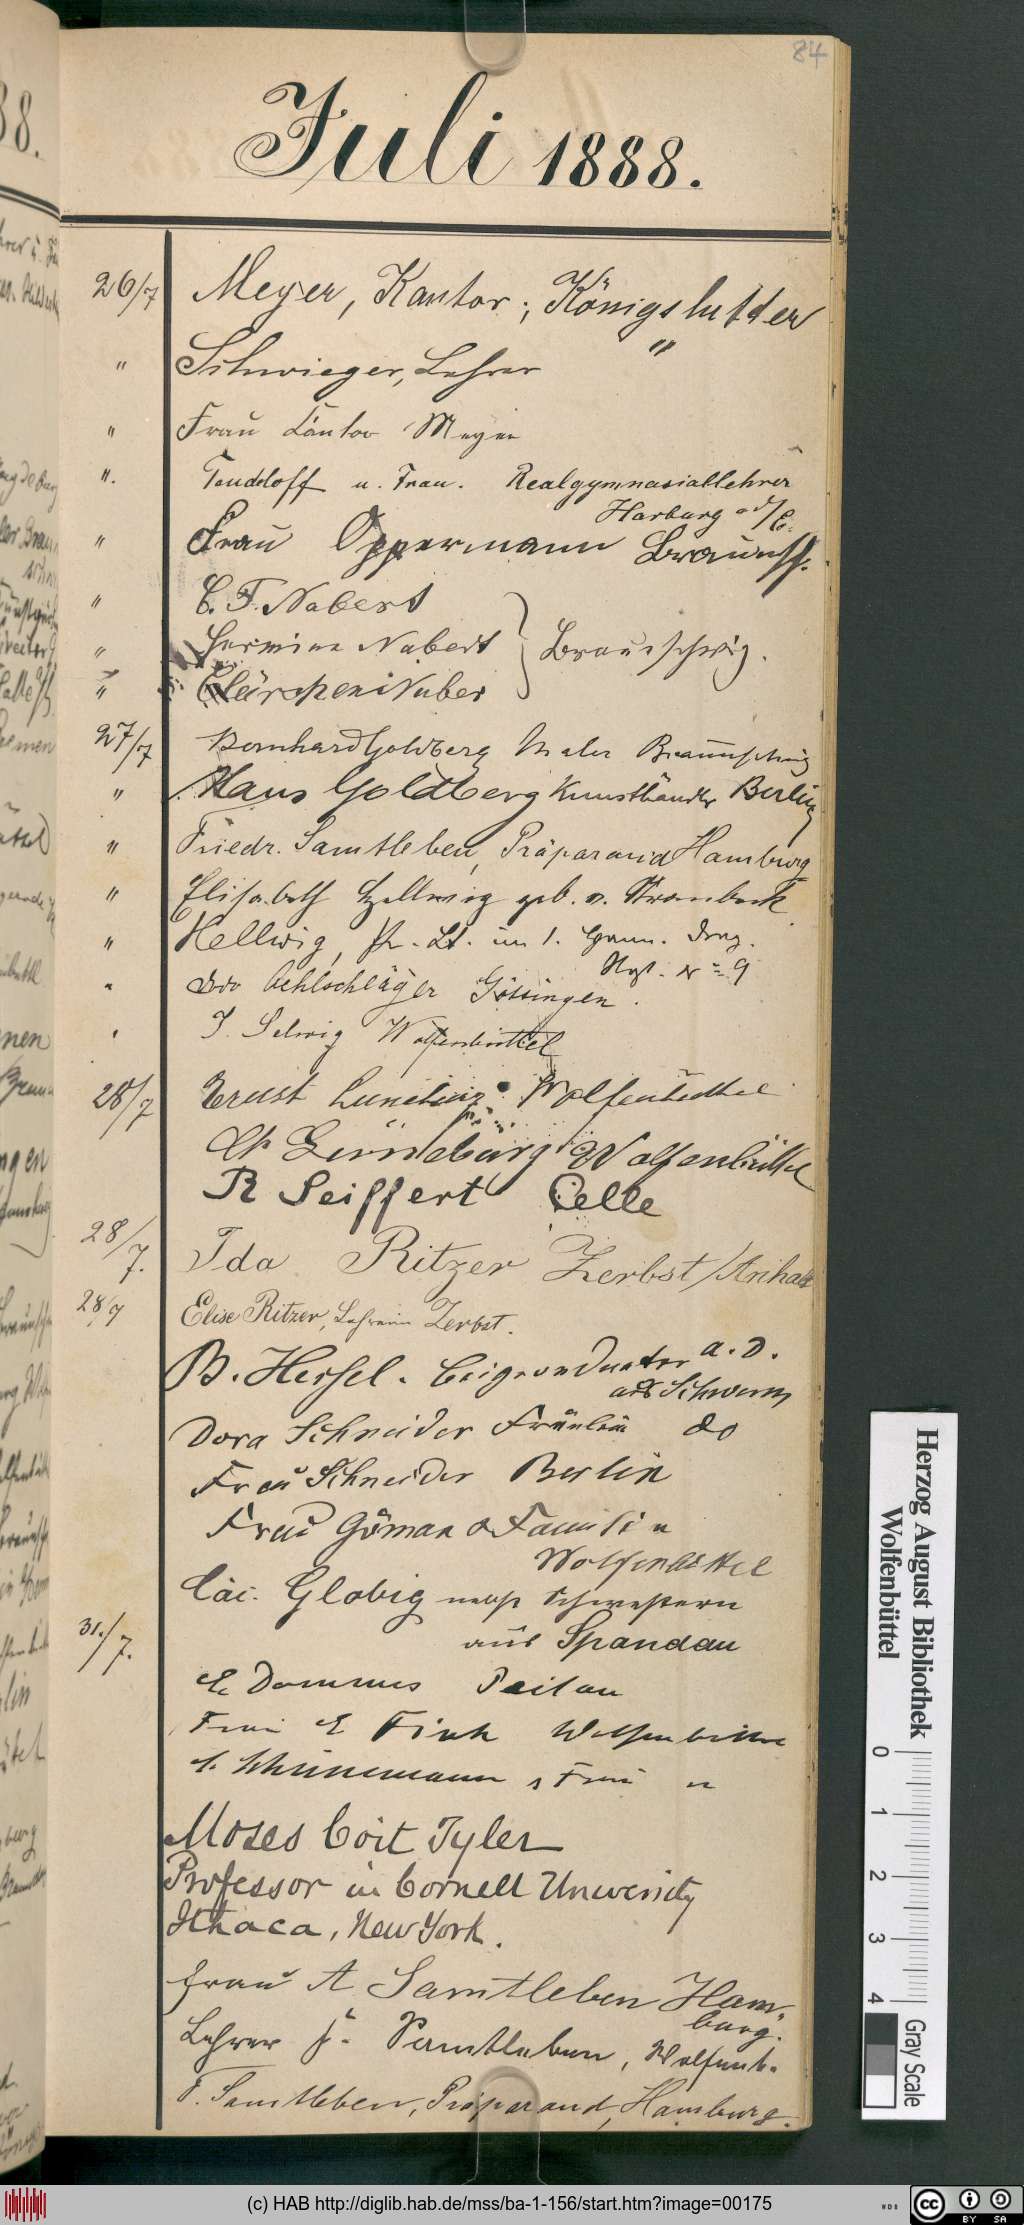 84
Juli 1888.
26/7 Meyer, Kantor, Königslutter
" Schwieger, Lehrer "
" Frau Kantor Meyer
". Tendeloff u. Frau. Realgymnasiallehrer
Harburg a/E.
" Frau Oppermann Braunsch.
" C. F. Nabert
" Hermine Nabert Braunschweig.
" Clärchen Nabert
27/7 Bernhard Goldberg Maler Braunschweig
" Hans Goldberg Kunsthändler Berlin
" Friedr. Samtleben, Präparand Hamburg
" Elisabeth Hellwig geb. v. Strombeck
" Hellwig, Pr. Lt. im 1. Hann. Drag.
Rgt. Nr 9
" Oehlschläger Göttingen.
" J. Selwig Wolfenbüttel
28/7 Ernst Lüneburg Wolfenbüttel
Lüneburg Wolfenbüttel
R Seiffert Celle
28/7. Ida Ritzer Zerbst/Anhalt
28/7 Elise Ritzer, Lehrerin Zerbst.
B. Hessel. a. D.
aus Schwerin
Dora Schneider Fräulein do
Frau Schneider Berlin
Frau Familie
Wolfenbüttel
Cäc. Globig nebst Schwestern
31./7. aus Spandau
E Dommes
Frau E Fink Wolfenbüttel
Schünemann Frau "
Moses Coit Tyler
Professor in Cornell University
Ithaca, New York.
Frau A Samtleben Ham-
burg.
Lehrer Fr. Samtleben, Wolfenb.
F. Samtleben, Präparand, Hamburg.
Herzog August Bibliothek
Wolfenbüttel
0 1 2 3 4
Gray Scale
(c) HAB http://diglib.hab.de/mss/ba-1-156/start.htm?image=00175
WDB
cc BY SA